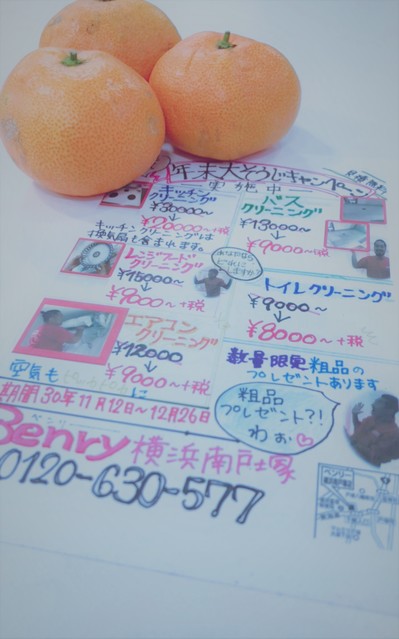 年末大そうじキャンペーン
実施中
キッチン
クリーニング
¥20000〜+税
キッチンクリーニングは
換気扇も含まれます。
レンジフード
クリーニング
¥15000〜
¥9000〜+税
エアコン
クリーニング
¥12000
¥9000〜+税
空気も
期間30年11月12日〜12月26日
バス
クリーニング
¥13000〜
¥9000〜+税
トイレクリーニング
¥9000〜
¥8000〜+税
数量限定 粗品の
プレゼントあります
粗品
プレゼント?!
わぁ♡
ベンリー
Benry 横浜南戸塚
0120-630-577